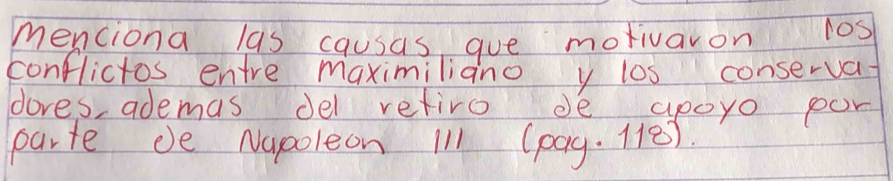 Menciona las causas que motivaron los
conflictos entre Maximiliano y los conserva-
dores, ademas del retiro de apoyo por
parte de Napoleon III (pag. 118).